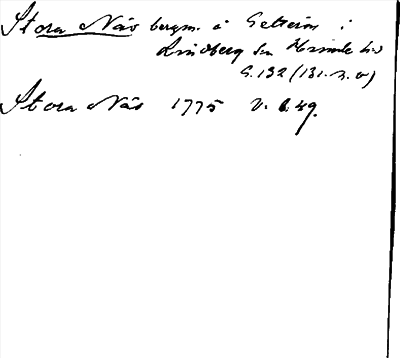 Stora Näs bergm. å Getterön i
Lindberg sn Himle hd
S. 132 (131. n. o)
Stora Näs 1775 V. 6. 49.